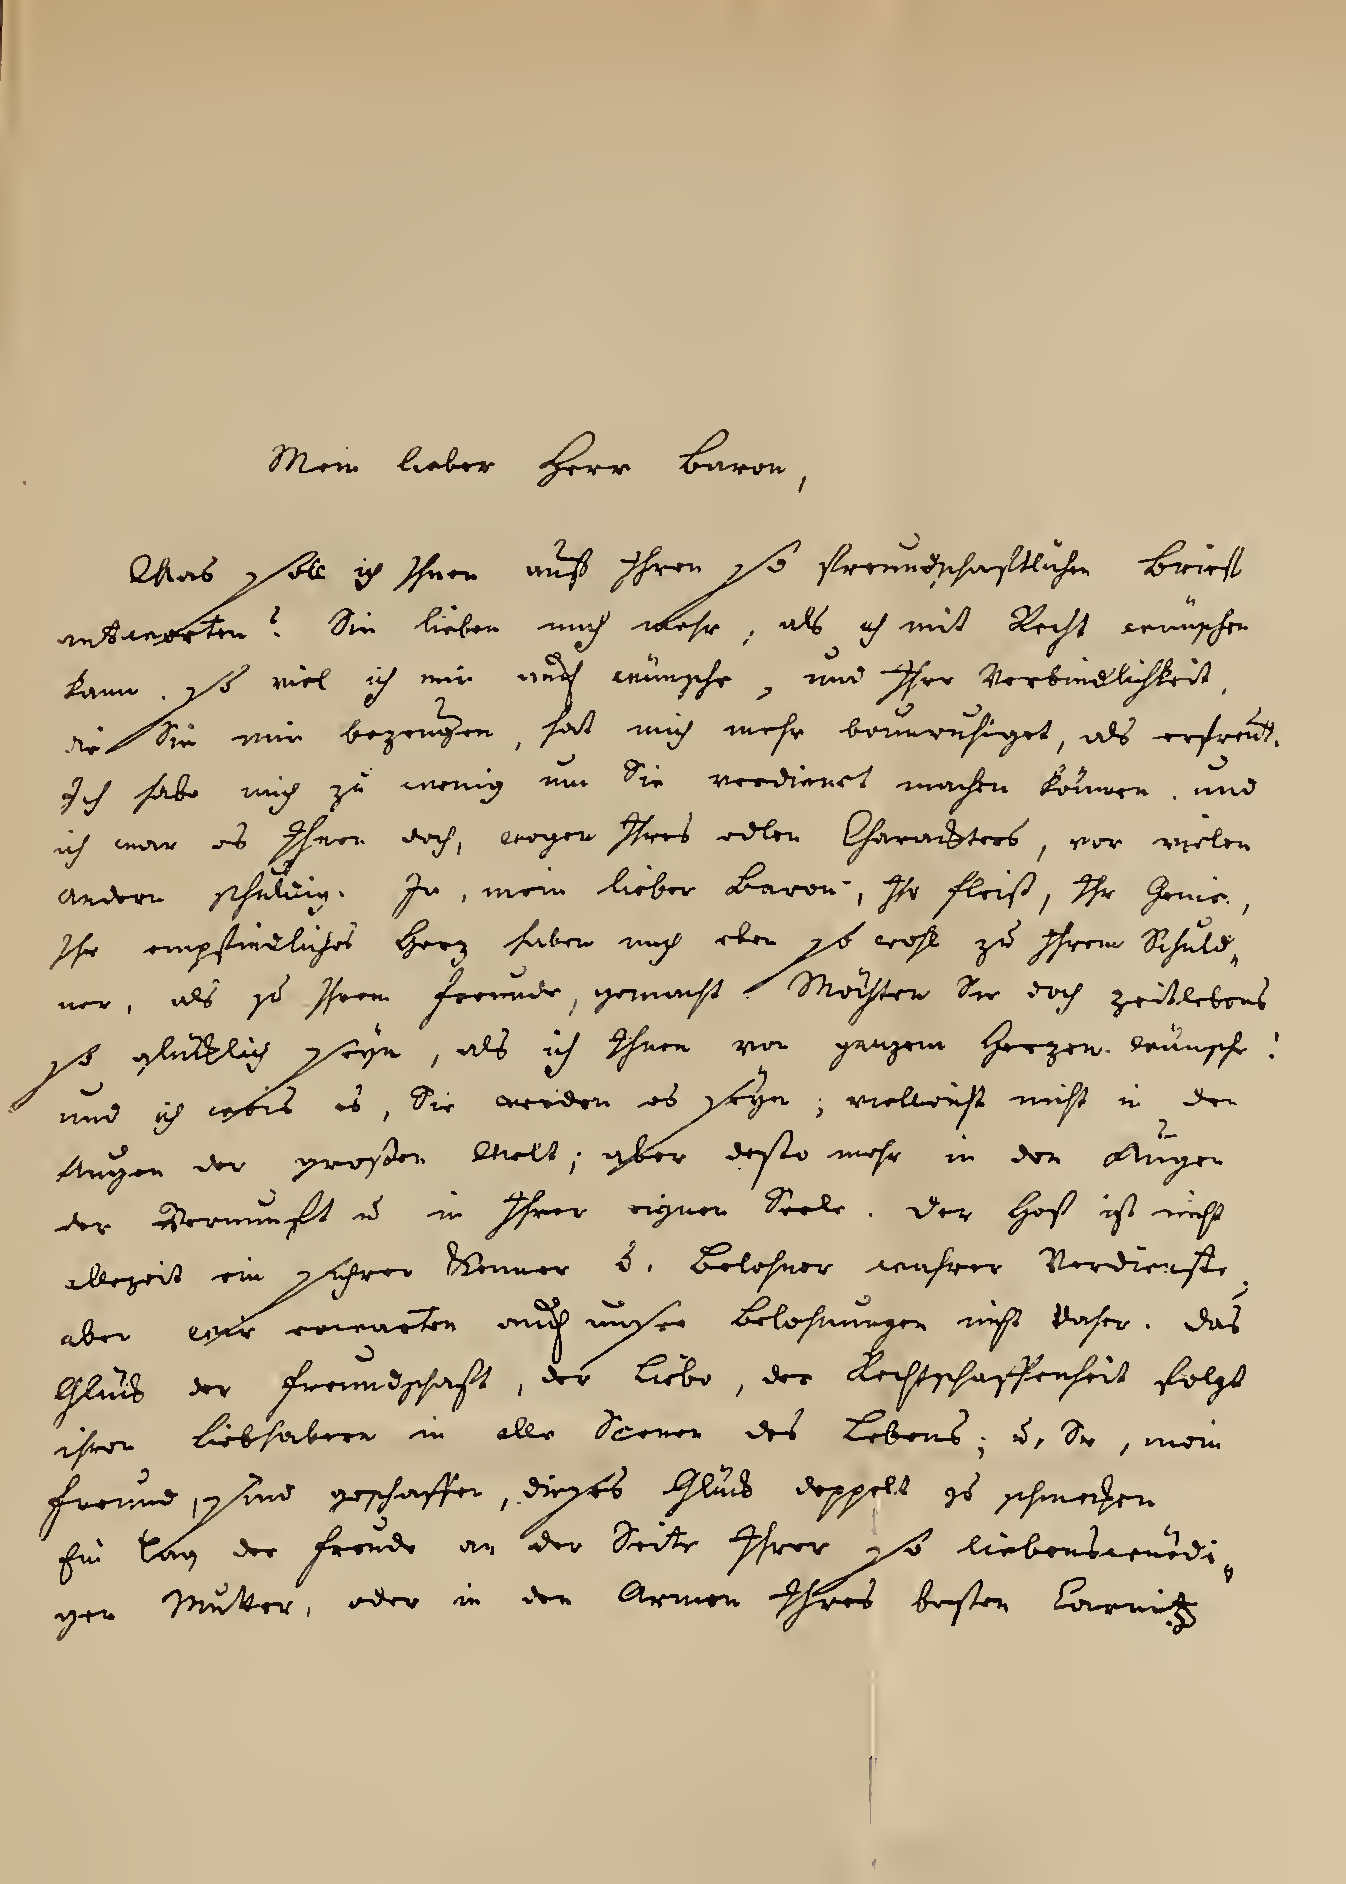 Mein lieber Herr Baron,
Was soll ich Ihnen auf Ihren so freundschaftlichen Brief
antworten? Sie lieben mich mehr, als ich mit Recht wünschen
kann, so viel ich mir auch wünsche, und Ihre Verbindlichkeit,
die Sie mir bezeugen, hat mich mehr beunruhiget, als erfreut.
Ich habe mich zu wenig um Sie verdient machen können, und
ich war es Ihnen doch, wegen Ihres edlen Charackters, vor vielen
andern schuldig. Ja, mein lieber Baron, Ihr Fleiß, Ihr Genie,
Ihr empfindliches Herz haben mich eben so wohl zu Ihrem Schuld„
ner, als zu Ihrem Freunde, gemacht. Möchten Sie doch zeitlebens
so glücklich seyn, als ich Ihnen von ganzem Herzen wünsche!
und ich weis es, Sie werden es seyn; vielleicht nicht in den
Augen der großen Welt; aber desto mehr in den Augen
der Vernunft u in Ihrer eignen Seele. Der Hof ist nicht
allezeit ein sichrer Kenner u. Belohner wahrer Verdienste,
aber wir erwarten auch unsre Belohnungen nicht daher. Das
Glück der Freundschaft, der Liebe, der Rechtschaffenheit folgt
ihren Liebhabern in alle Scenen des Lebens; u. Sie, mein
Freund, sind geschaffen, dieses Glück doppelt zu schmecken
Ein Tag der Freude an der Seite Ihrer so liebenswürdi„
gen Mutter, oder in den Armen Ihres besten